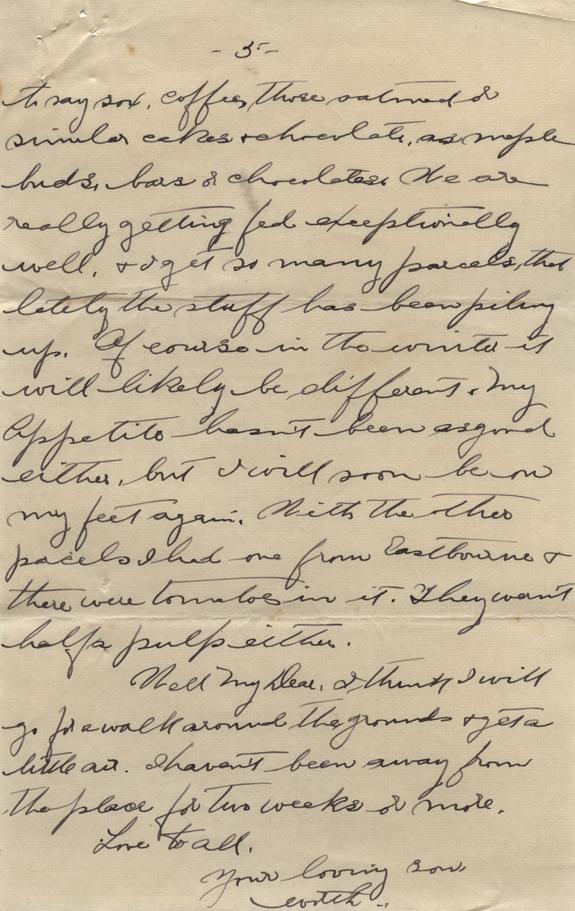 - 5 -
to say sox, coffee, those oatmeal or
similar cakes + chocolate, as maple
buds, bars or chocolates. We are
really getting fed exceptionally
well, + I get so many parcels, that
lately the stuff has been piling
up. Of course in the winter it
will likely be different. My
appetite hasn't been as good
either, but I will soon be on
my feet again. With the other
parcels I had one from Eastbourne +
there were tomatoes in it. They wasn't
half a pulp either.
Well My Dear, I think I will
go for a walk around the grounds + get a
little air. I haven't been away from
the place for two weeks or more.
Love to all.
Your loving son